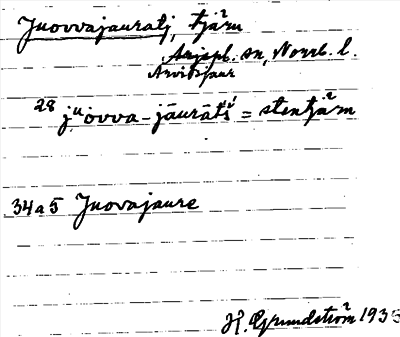 Juovvajauratj, tjärn
Arjepl. sn, Norrb. l.
Arvidsjaur
28 juovva-jāurātś = stentjärn
34a5 Juovajaure
H. Grundström 193